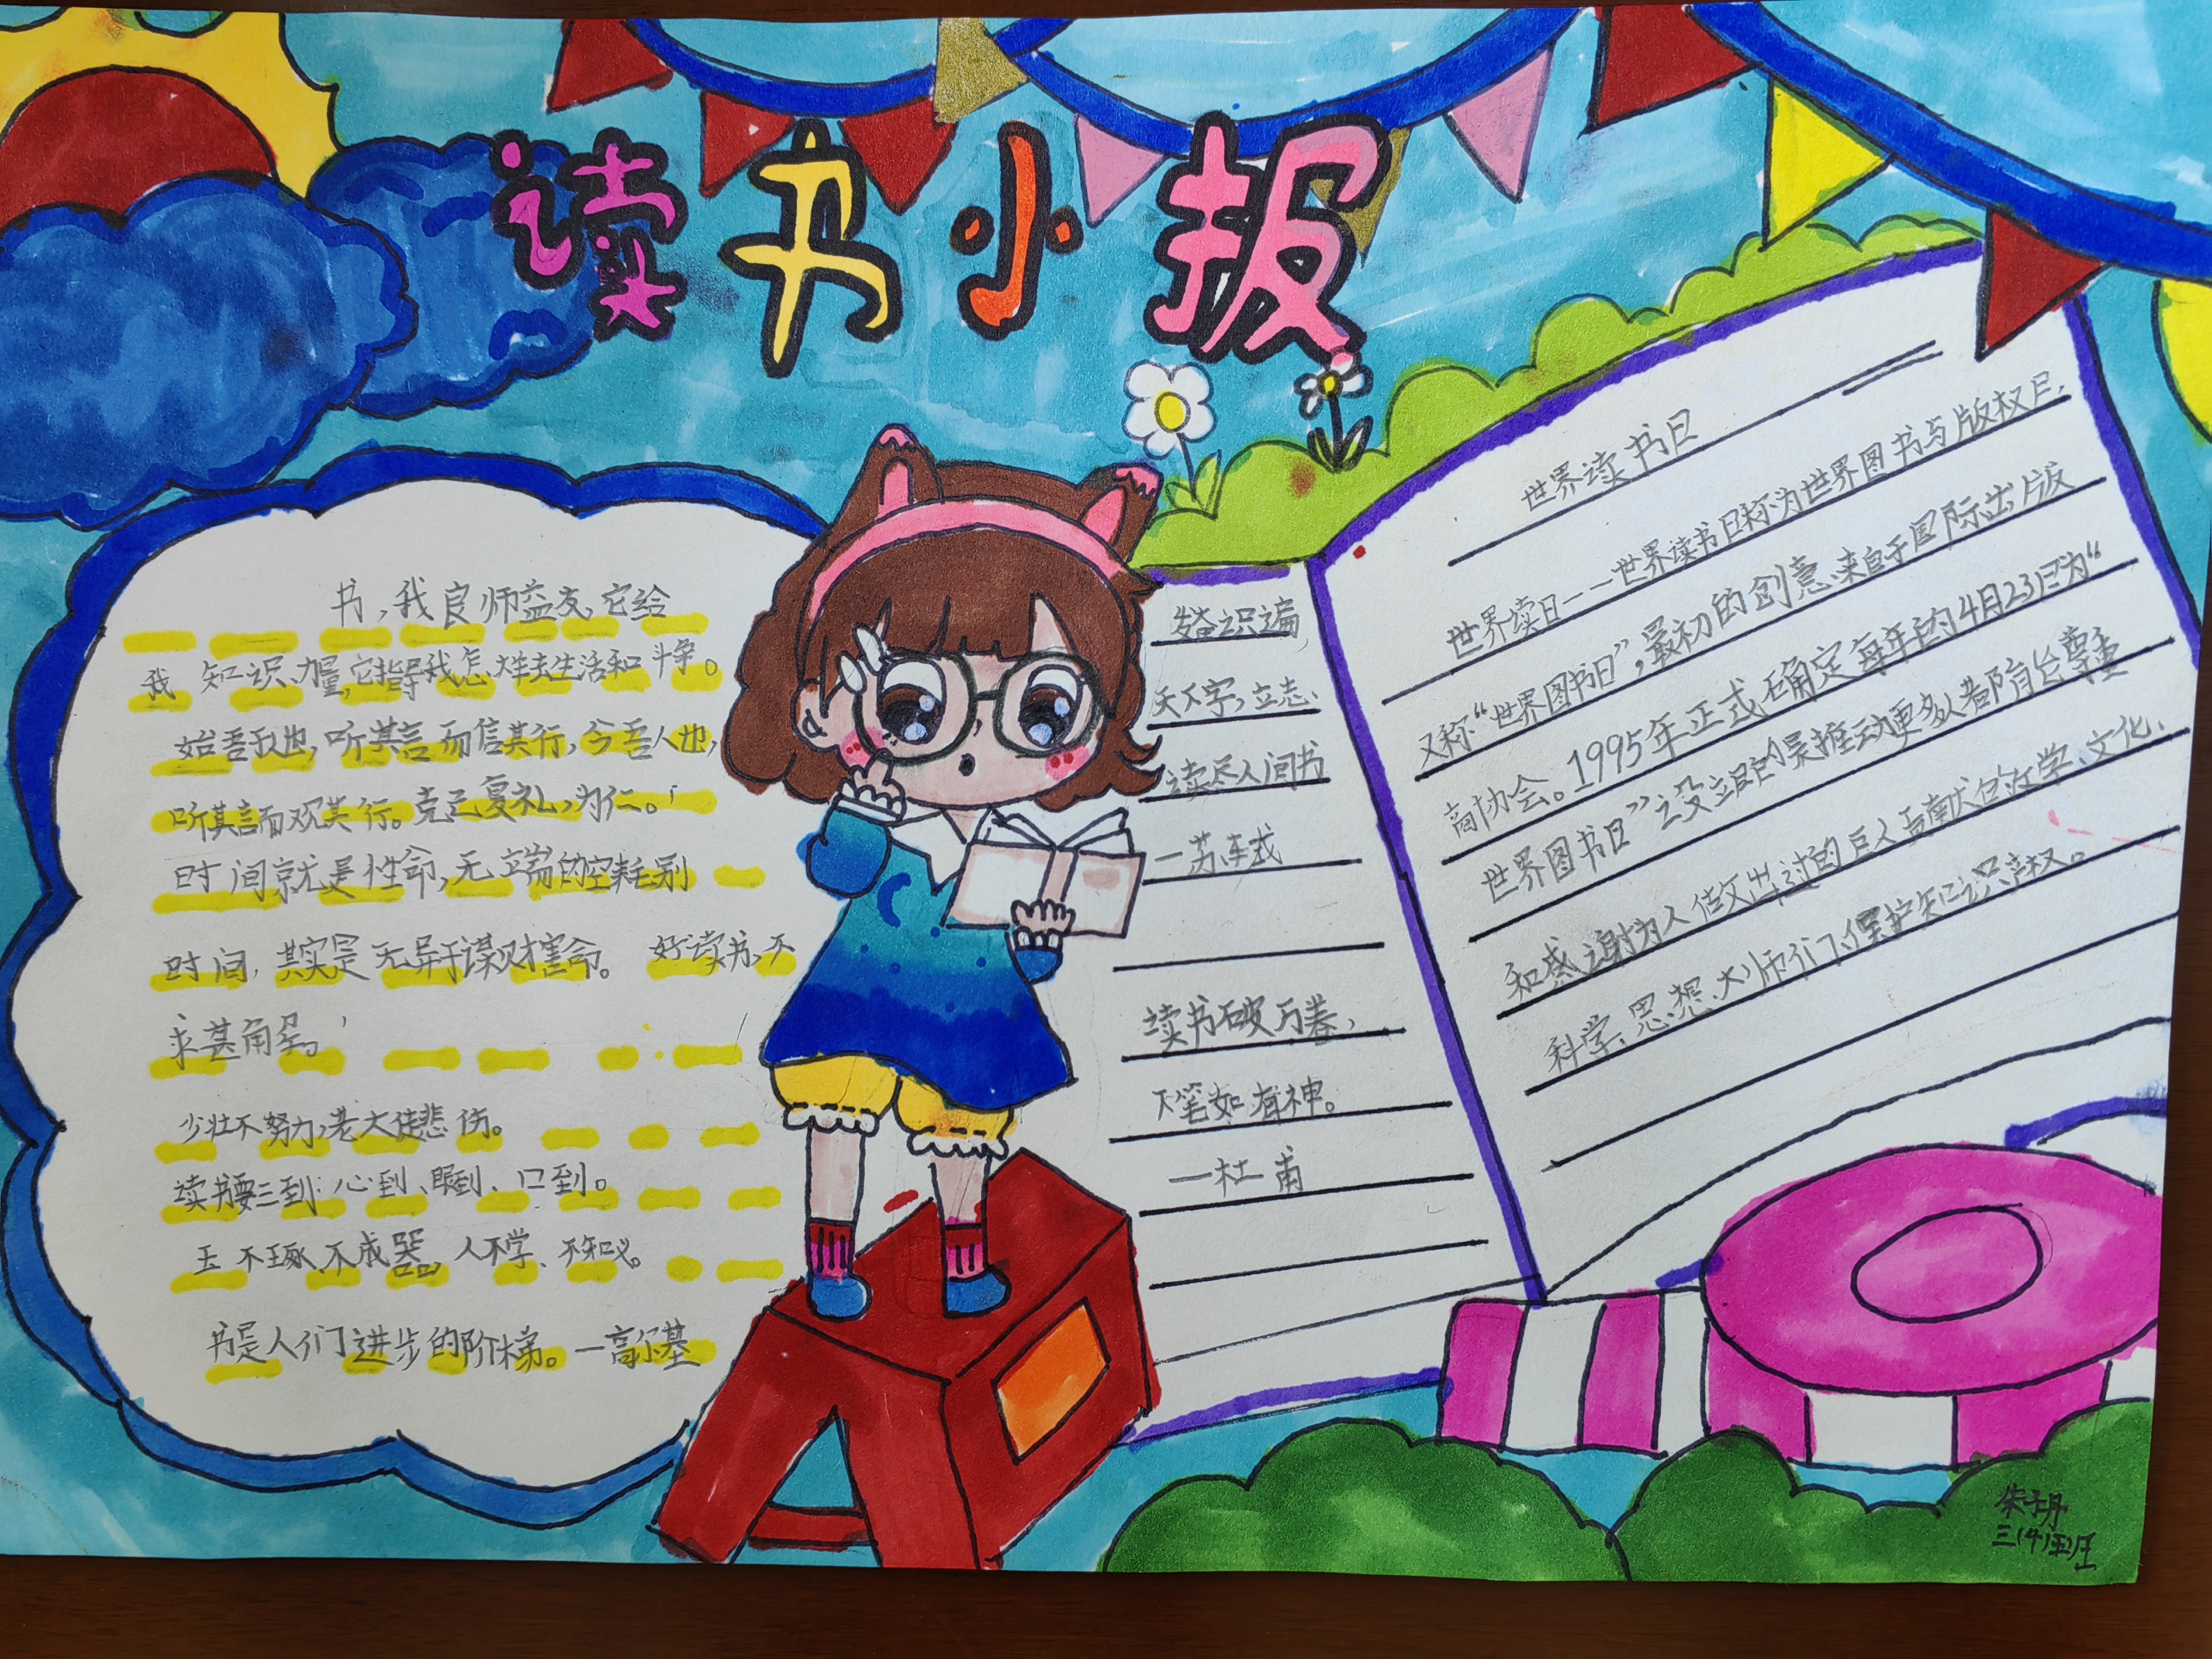 读书小报
书,我良师益友,它给
我 知识、力量,它指导我怎样去生活和斗争。
始吾于人也,听其言而信其行,今吾人也,
听其言而观其行。克己复礼,为仁。
时间就是性命,无端的空耗别
时间,其实是无异于谋财害命。 好读书,不
求甚解。
少壮不努力,老大徒悲伤。
读书要三到:心到、眼到、口到。
玉不琢、不成器。人不学、不知义。
书是人们进步的阶梯。—高尔基
识遍
天下字,立志、
读尽人间书
—苏轼
读书破万卷,
下笔如有神。
—杜甫
世界读书日
世界读日——世界读书日称为世界图书与版权日,
又称“世界图书日”,最初的创意来自于国际出版
商协会。1995年正式确定每年的4月23日为“
世界图书日”设立目的是推动更多人都阅 尊重
和感谢为人 做出过的巨人 献 的 学、文化、
科学、思想、大师们、保护知识产权。
朱子丹
三(4)班